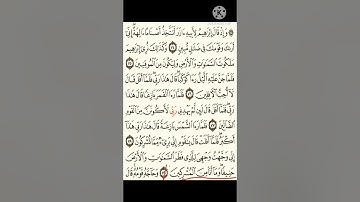 وَإِذْ قَالَ إِبْرَٰهِيمُ لِأَبِيهِ ءَازَرَ أَتَتَّخِذُ أَصْنَامًا ءَالِهَةً إِنِّىٓ
أَرَىٰكَ وَقَوْمَكَ فِى ضَلَٰلٍ مُّبِينٍ ٧٤ وَكَذَٰلِكَ نُرِىٓ إِبْرَٰهِيمَ
مَلَكُوتَ ٱلسَّمَٰوَٰتِ وَٱلْأَرْضِ وَلِيَكُونَ مِنَ ٱلْمُوقِنِينَ ٧٥
فَلَمَّا جَنَّ عَلَيْهِ ٱلَّيْلُ رَءَا كَوْكَبًا قَالَ هَٰذَا رَبِّى فَلَمَّآ أَفَلَ قَالَ
لَآ أُحِبُّ ٱلْءَافِلِينَ ٧٦ فَلَمَّا رَءَا ٱلْقَمَرَ بَازِغًا قَالَ هَٰذَا
رَبِّى فَلَمَّآ أَفَلَ قَالَ لَئِن لَّمْ يَهْدِنِى رَبِّى لَأَكُونَنَّ مِنَ ٱلْقَوْمِ
ٱلضَّآلِّينَ ٧٧ فَلَمَّا رَءَا ٱلشَّمْسَ بَازِغَةً قَالَ هَٰذَا رَبِّى هَٰذَآ
أَكْبَرُ فَلَمَّآ أَفَلَتْ قَالَ يَٰقَوْمِ إِنِّى بَرِىٓءٌ مِّمَّا تُشْرِكُونَ ٧٨
إِنِّى وَجَّهْتُ وَجْهِىَ لِلَّذِى فَطَرَ ٱلسَّمَٰوَٰتِ وَٱلْأَرْضَ
حَنِيفًا وَمَآ أَنَا۠ مِنَ ٱلْمُشْرِكِينَ ٧٩ وَحَآجَّهُۥ قَوْمُهُۥ قَالَ